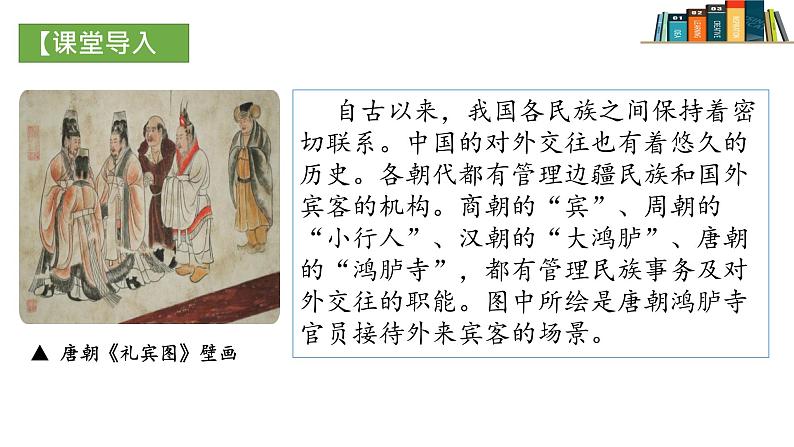 【课堂导入
01
IDEA
02
LEARNING
03
CREATIVE
04
INSPIRATION
自古以来，我国各民族之间保持着密
切联系。中国的对外交往也有着悠久的
历史。各朝代都有管理边疆民族和国外
宾客的机构。商朝的“宾”、周朝的
“小行人”、汉朝的“大鸿胪”、唐朝
的“鸿胪寺”，都有管理民族事务及对
外交往的职能。图中所绘是唐朝鸿胪寺
官员接待外来宾客的场景。
▲ 唐朝《礼宾图》壁画